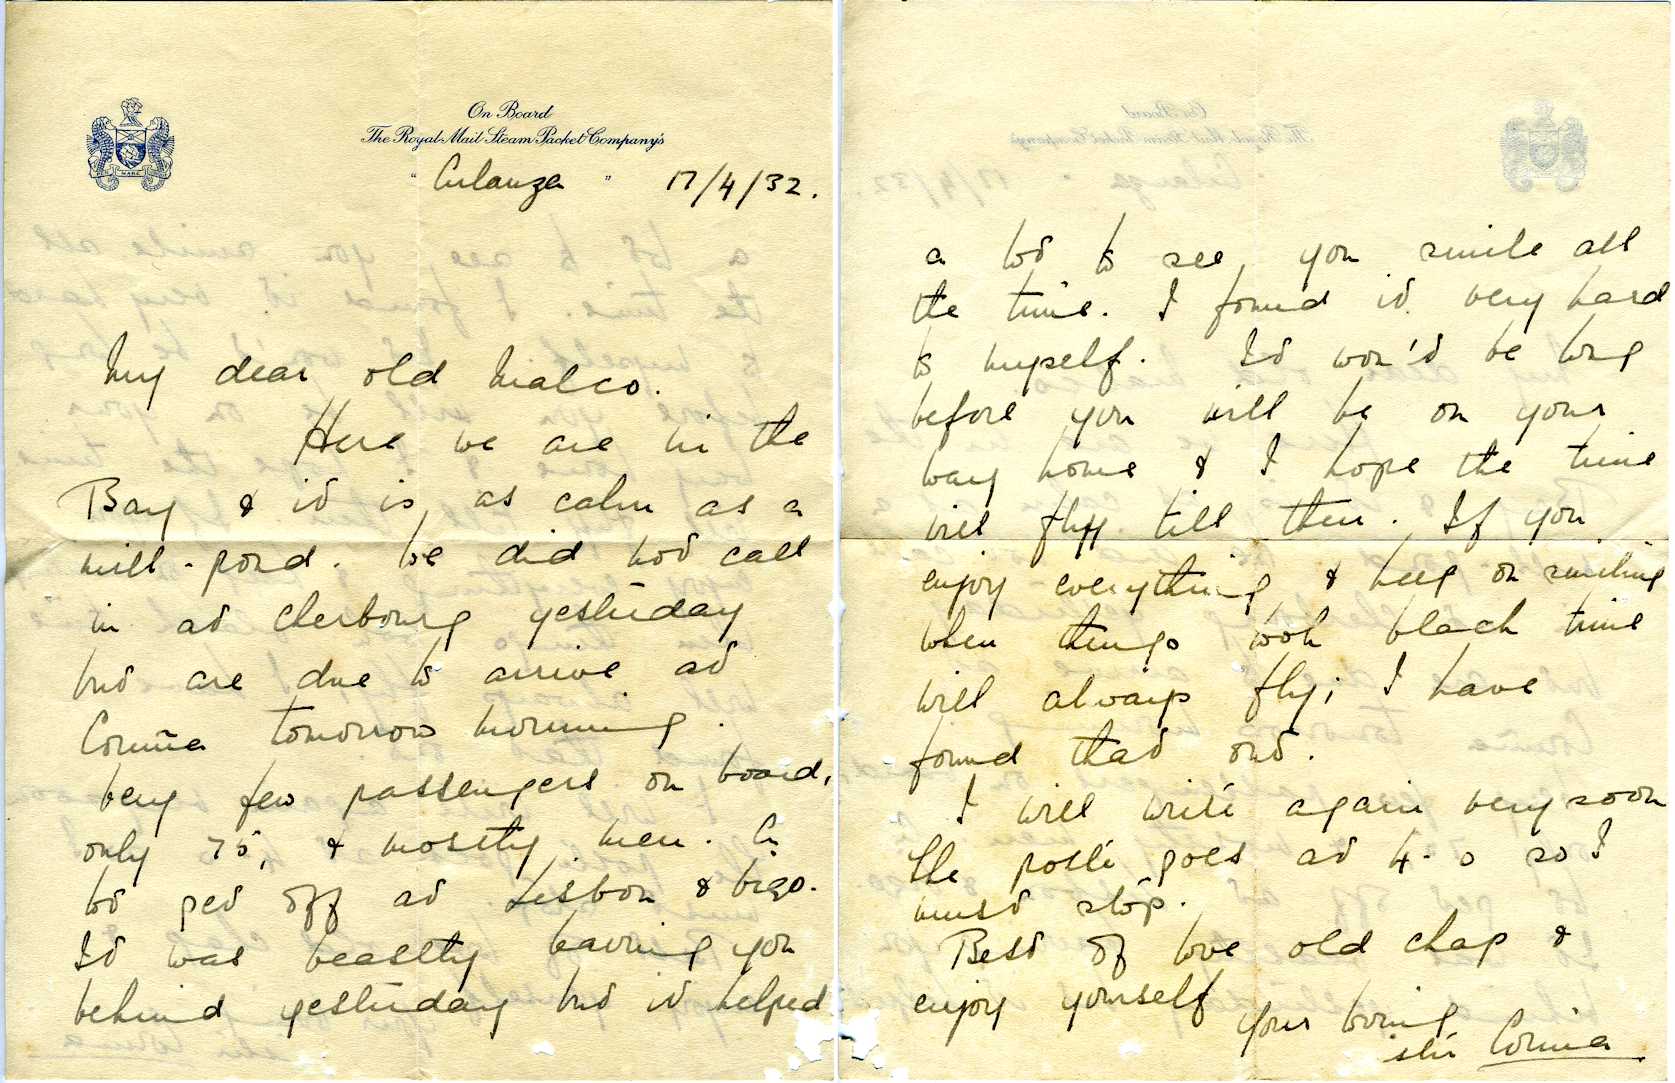 On Board
The Royal Mail Steam Packet Company's
" Arlanza " 17/4/32.
MARE
My dear old Malco.
Here we are in the
Bay & it is as calm as a
mill-pond. We did not call
in at Cherbourg yesterday
but are due to arrive at
Coruña tomorrow morning.
Very few passengers on board,
only 75, & mostly men. A
lot get off at Lisbon & Vigo.
It was beastly leaving you
behind yesterday but it helped
a lot to see you smile all
the time. I found it very hard
to myself. It won't be long
before you will be on your
way home & I hope the time
will fly till then. If you
enjoy everything & keep on smiling
when things look black time
will always fly; I have
found that out.
I will write again very soon
the post goes at 4-0 so I
must stop.
Best of love old chap &
enjoy yourself
Your loving